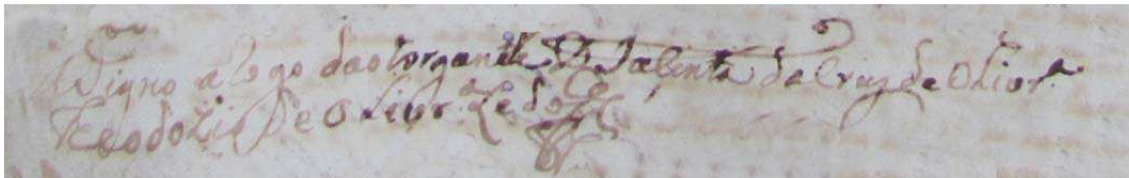 Asigno a Rogo da otorgante D. Jasinta da Cruz de Olivr.ª
Teodozio De Olivr.ª Ledo